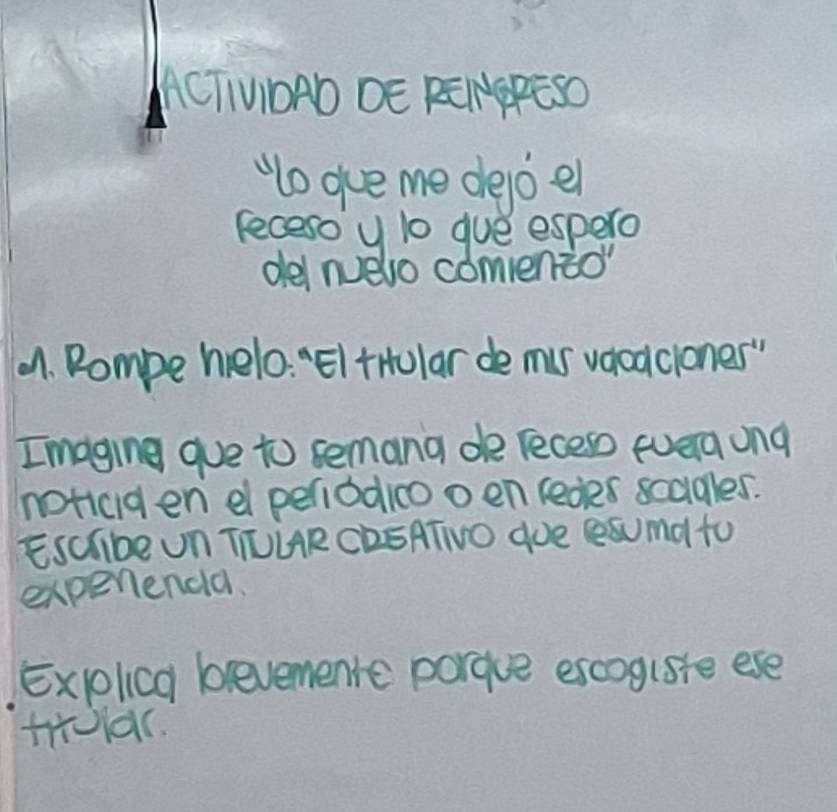 ACTIVIDAD DE REINGRESO
"lo que me dejó el
receso y lo que espero
del nuevo comienzo"
1. Rompe hielo: "El titular de mis vacaciones"
Imagina que tu semana de receso fuera una
noticia en el periódico o en redes sociales.
Escribe un TITULAR CREATIVO que resuma tu
experiencia.
Explica brevemente porque escogiste ese
titular.